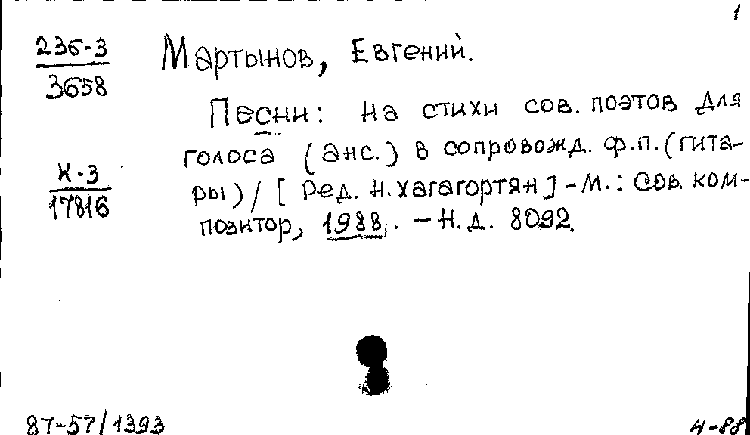 1
236-3
3658
Мартынов, Евгений.
Песни: на стихи сов. поэтов для
голоса (анс.) в сопровожд. ф.п. (гита-
ры) / [Ред. Н. Хагагортян] - М.: Сов. ком-
позитор, 1988. - Н.д. 8092.
Н-3
17816
87-57/1393
4-88